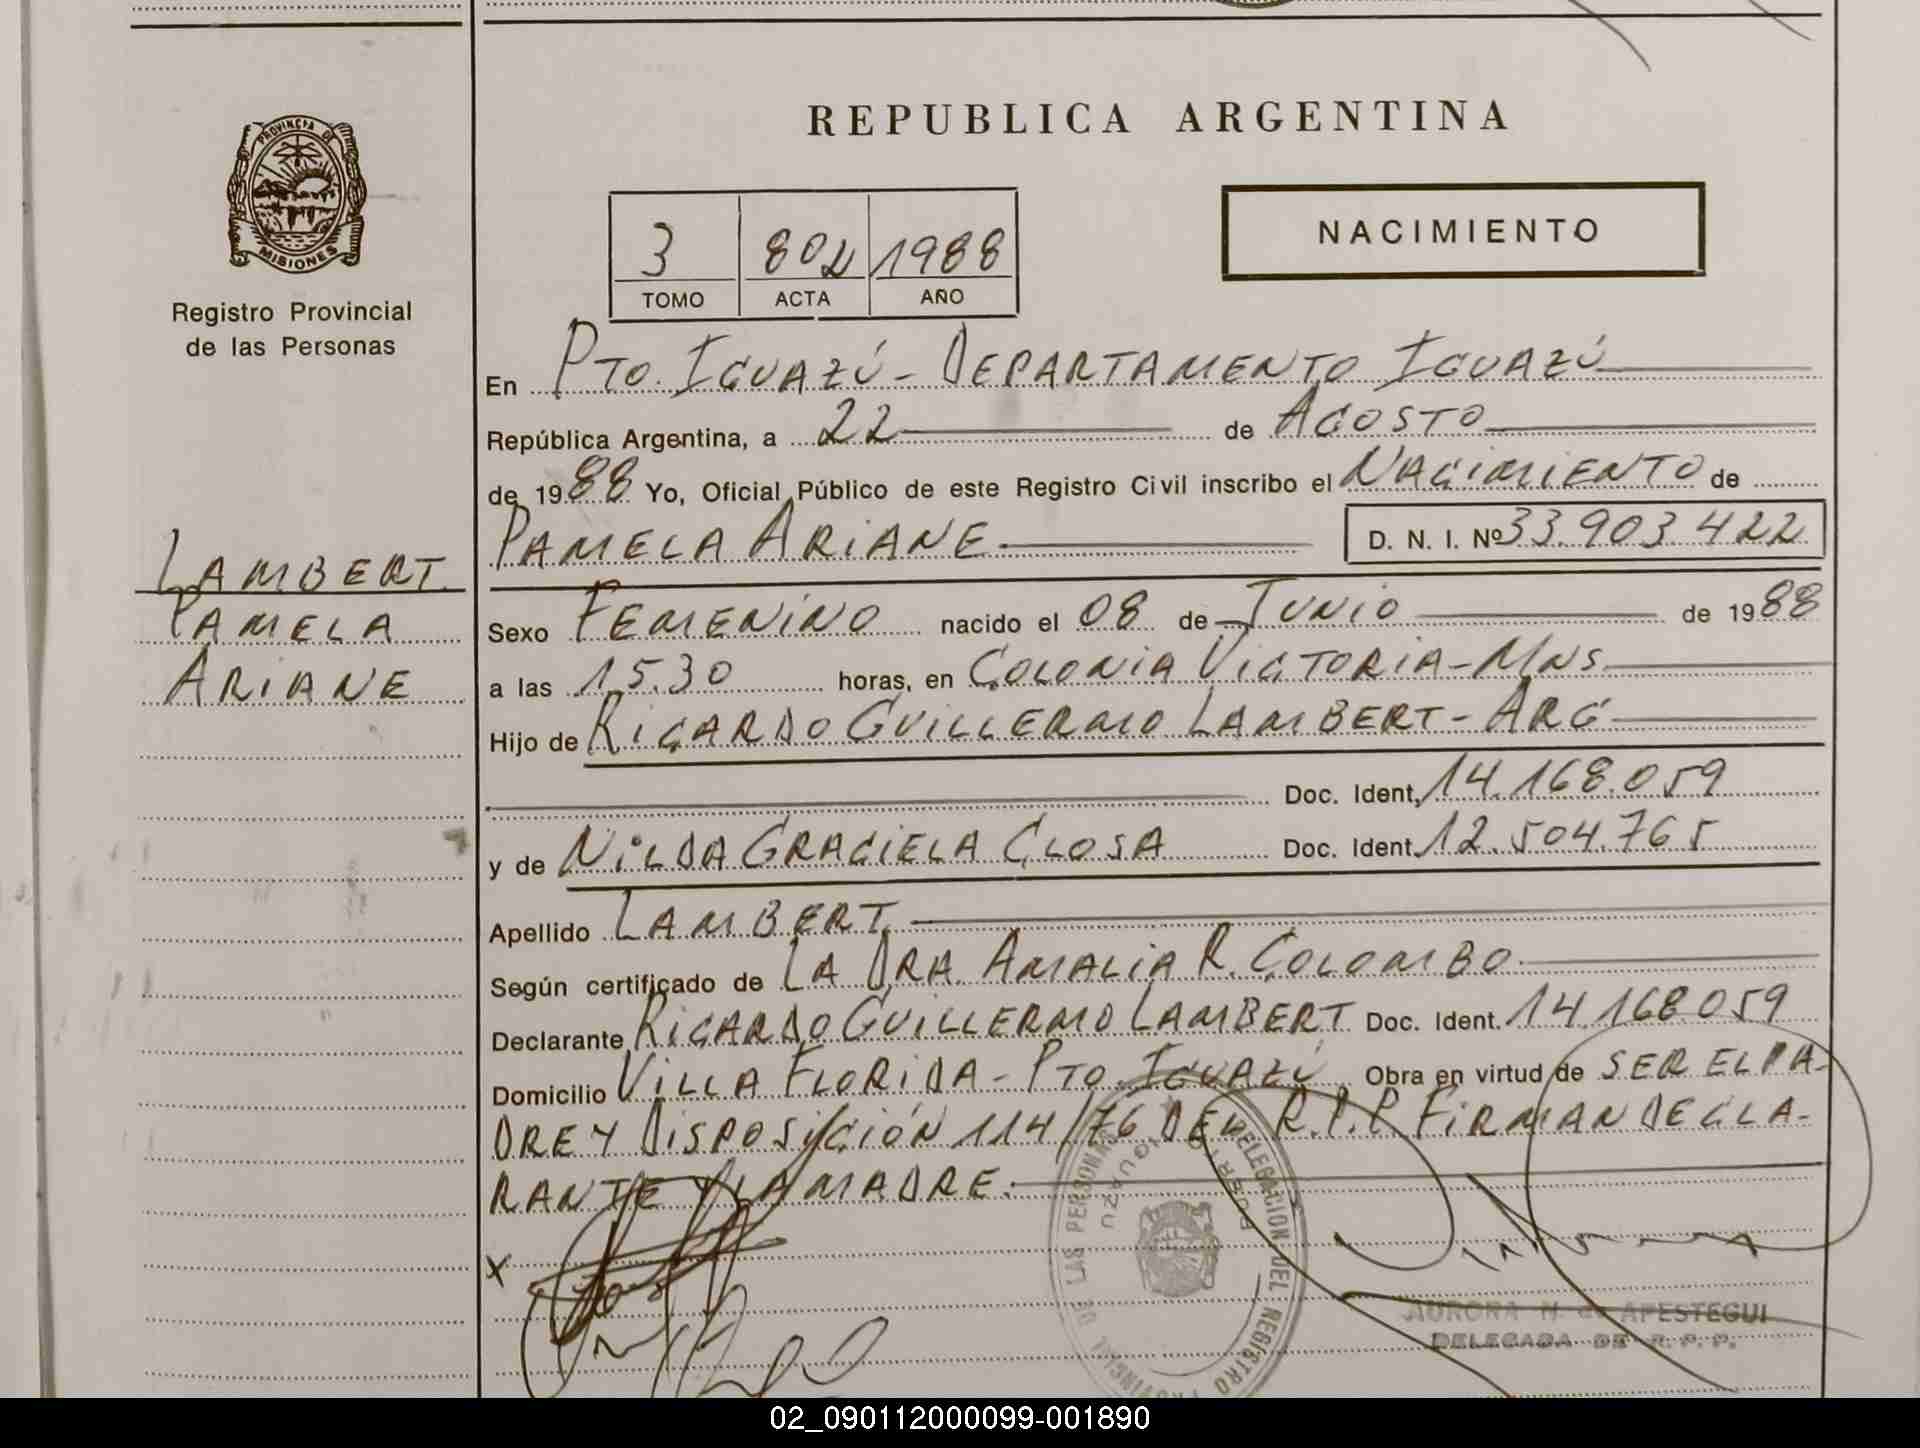 REPUBLICA ARGENTINA
PROVINCIA DE
MISIONES
Registro Provincial
de las Personas
3 802 1988
TOMO ACTA AÑO
NACIMIENTO
En PTO. IGUAZÚ - DEPARTAMENTO IGUAZÚ
República Argentina, a 22 de AGOSTO
de 1988 Yo, Oficial Público de este Registro Civil inscribo el NACIMIENTO de
PAMELA ARIANE D. N. I. Nº 33.903.422
LAMBERT
PAMELA
ARIANE
Sexo FEMENINO nacido el 08 de JUNIO de 1988
a las 15.30 horas, en COLONIA VICTORIA - MNS
Hijo de RICARDO GUILLERMO LAMBERT - ARG
Doc. Ident. 14.168.059
y de NILDA GRACIELA CLOSA Doc. Ident. 12.504.765
Apellido LAMBERT
Según certificado de LA DRA. AMALIA R. COLOMBO
Declarante RICARDO GUILLERMO LAMBERT Doc. Ident. 14.168.059
Domicilio VILLA FLORIDA - PTO. IGUAZÚ Obra en virtud de SER EL PA-
DRE Y DISPOSICIÓN 114/76 DEL R.P.P. FIRMAN DECLA-
RANTE Y LA MADRE.
X
DELEGACION DEL REGISTRO PROVINCIAL DE LAS PERSONAS
PUERTO IGUAZU
AURORA N. de APESTEGUI
DELEGADA DE R. P. P.
02_090112000099-001890